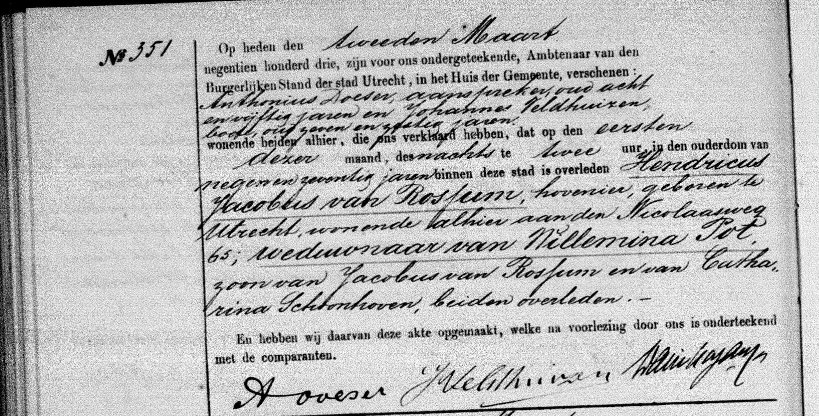 No 351
Op heden den tweeden Maart
negentien honderd drie, zijn voor ons ondergeteekende, Ambtenaar van den
Burgerlijken Stand der stad Utrecht, in het Huis der Gemeente, verschenen:
Anthonius Doeser, aanspreker, oud acht
en vijftig jaren en Johannes Veldhuizen,
bode, oud zeven en zestig jaren.
wonende beiden alhier, die ons verklaard hebben, dat op den eersten
dezer maand, des nachts te twee uur, in den ouderdom van
negen en zeventig jaren binnen deze stad is overleden Hendricus
Jacobus van Rossum, hovenier, geboren te
Utrecht, wonende alhier aan den Nicolaasweg
65; weduwnaar van Willemina Pot,
zoon van Jacobus van Rossum en van Catha-
rina Schoonhoven, beiden overleden. —
En hebben wij daarvan deze akte opgemaakt, welke na voorlezing door ons is onderteekend
met de comparanten.
A Doeser JVeldhuizen